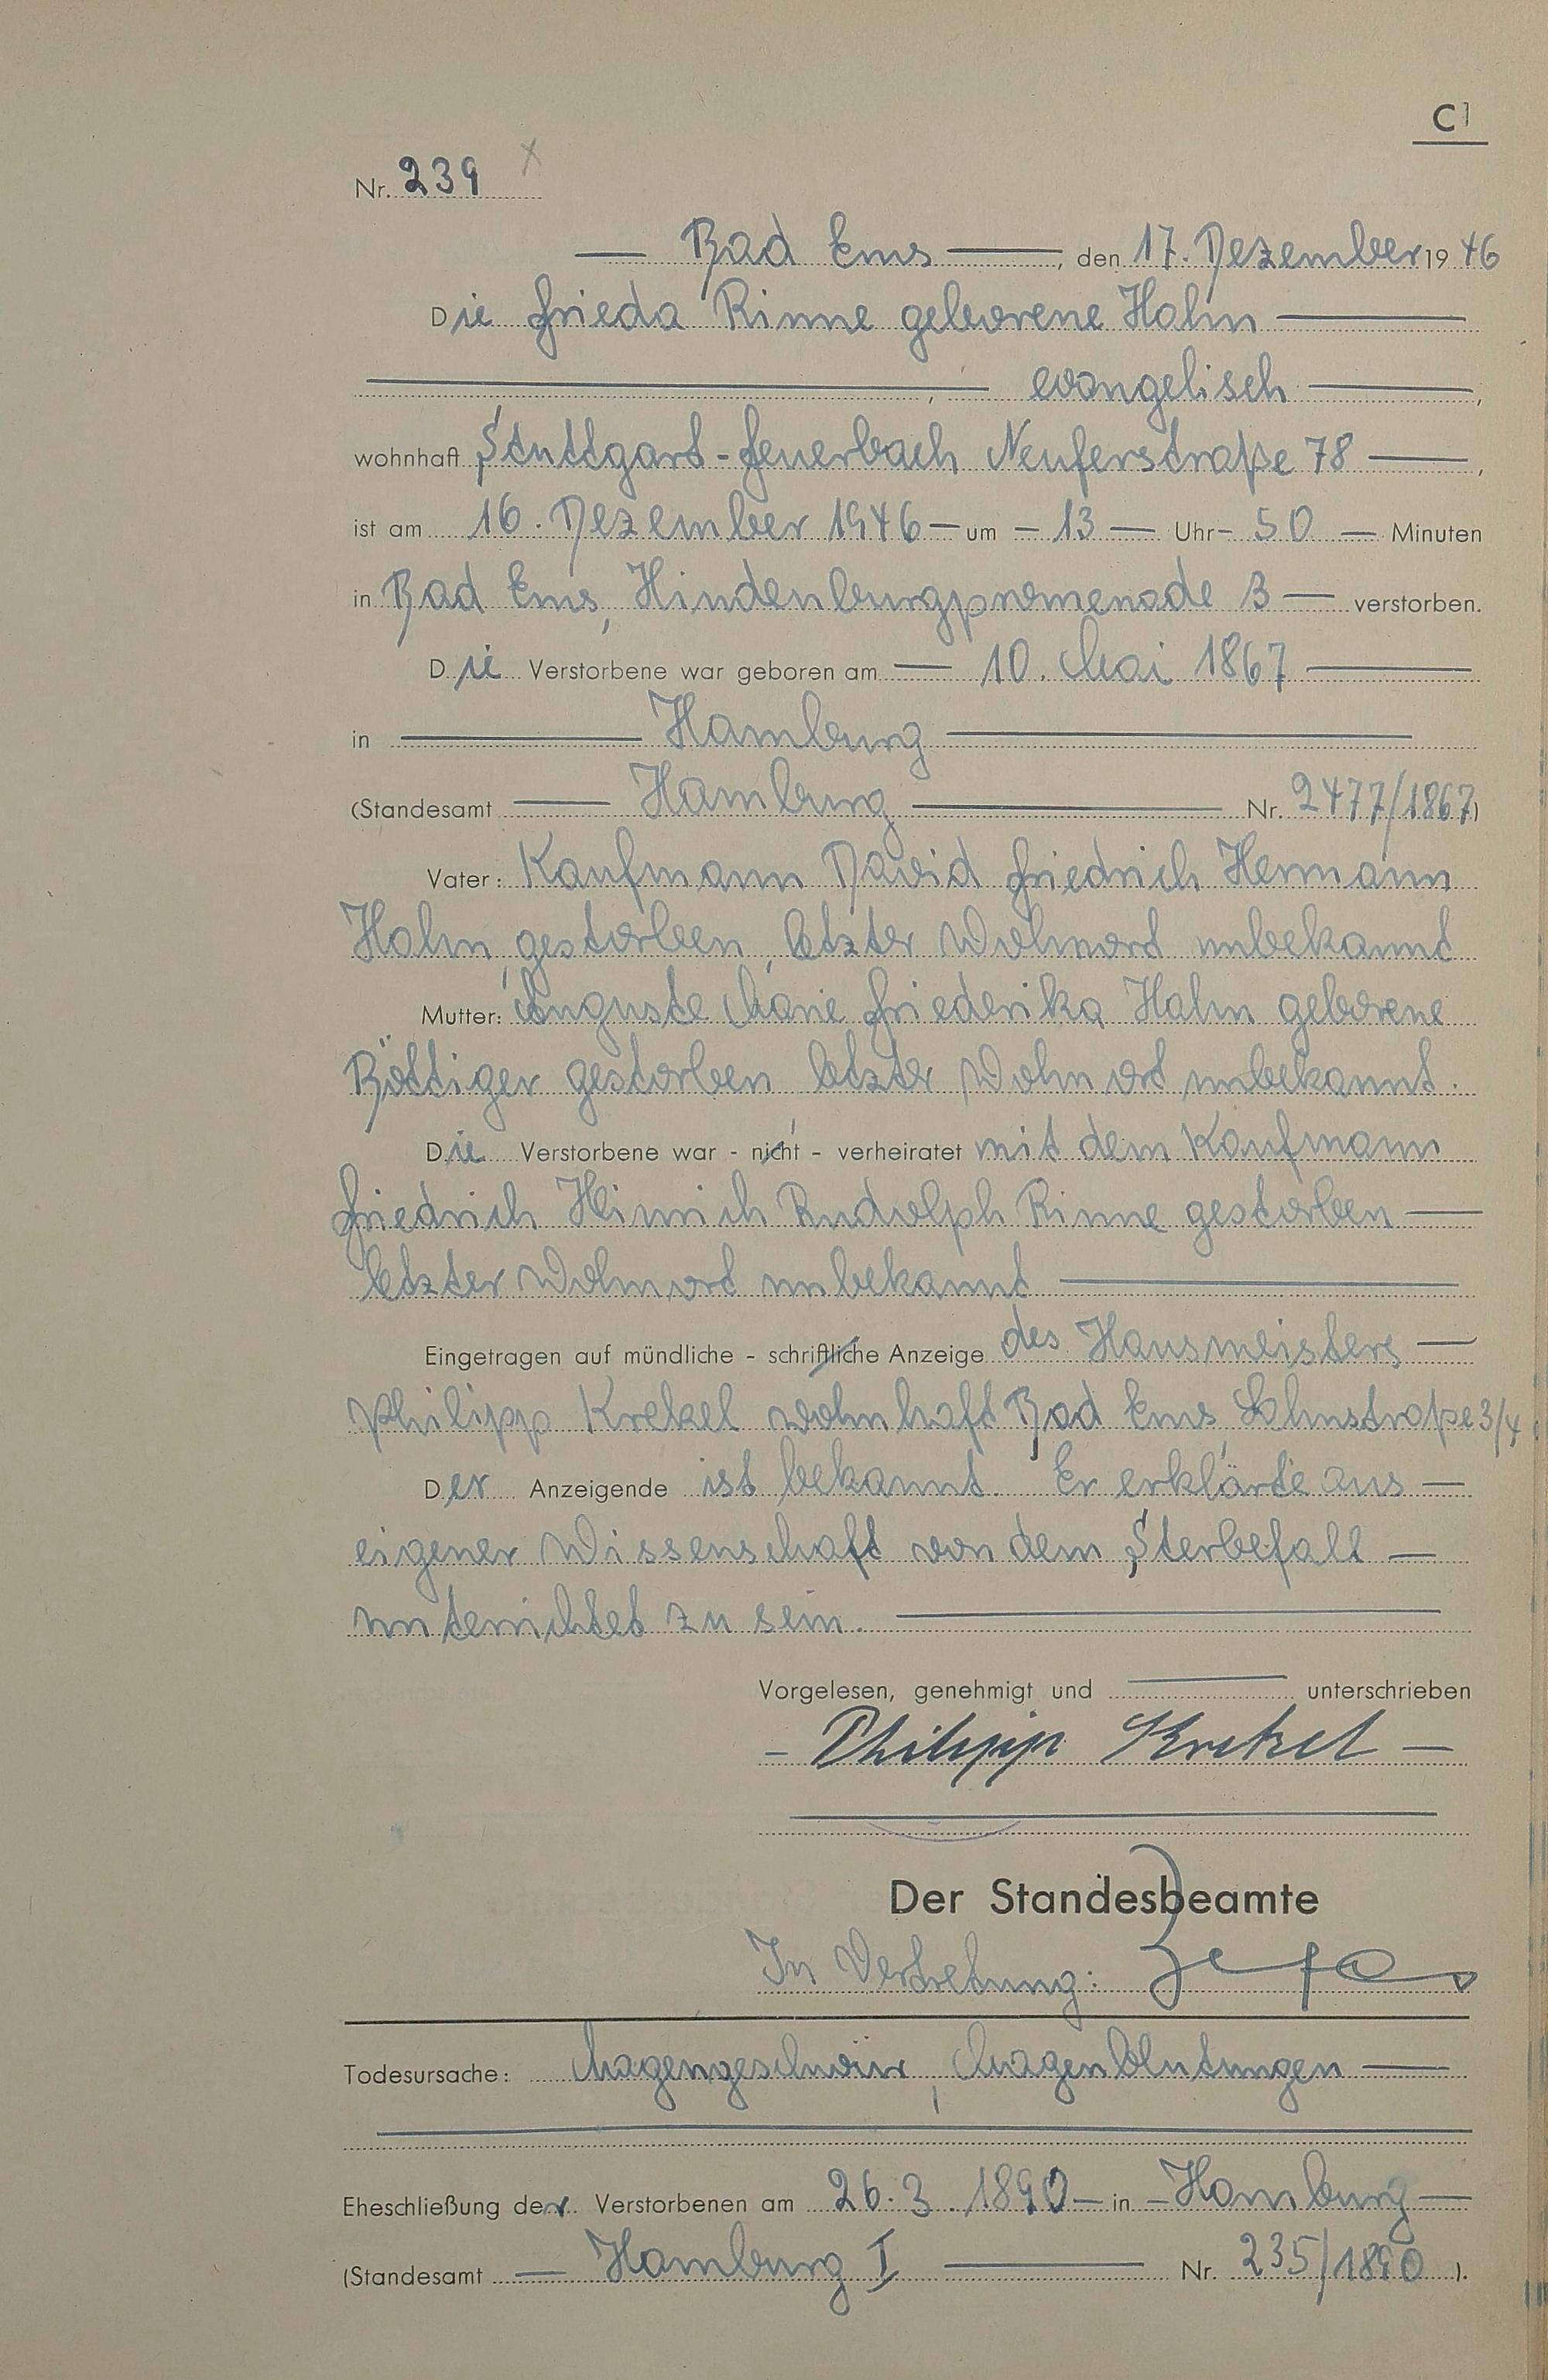 C
Nr. 239 x
— Bad Ems —, den 17. Dezember 19 46
Die Frieda Rinne geborene Hahn —
—, — evangelisch —,
wohnhaft Stuttgart-Feuerbach Neuferstraße 78 —,
ist am 16. Dezember 1946 — um — 13 — Uhr — 50 — Minuten
in Bad Ems, Hindenburgpromenade 3 — verstorben.
Die Verstorbene war geboren am — 10. Mai 1867 —
in — Hamburg —
(Standesamt — Hamburg — Nr. 2477/1867)
Vater: Kaufmann David Friedrich Hermann
Hahn, gestorben, letzter Wohnord unbekannt
Mutter: Auguste Marie Friederika Hahn geborene
Böttiger gestorben letzter Wohnort unbekannt.
Die Verstorbene war - nicht - verheiratet mit dem Kaufmann
Friedrich Hinrich Rudolph Rinne gestorben —
letzter Wohnord unbekannt —
Eingetragen auf mündliche - schriftliche Anzeige des Hausmeisters —
Philipp Krekel wohnhaft Bad Ems, Lahnstraße 3/4
Der Anzeigende ist bekannt. Er erklärte aus —
eigener Wissenschaft von dem Sterbefall —
unterrichtet zu sein. —
Vorgelesen, genehmigt und — unterschrieben
— Philipp Krekel —
Der Standesbeamte
In Vertretung:
Todesursache: Magengeschwür, Magenblutungen —
Eheschließung der Verstorbenen am 26.3.1890 — in — Hamburg —
(Standesamt — Hamburg I — Nr. 235/1890).